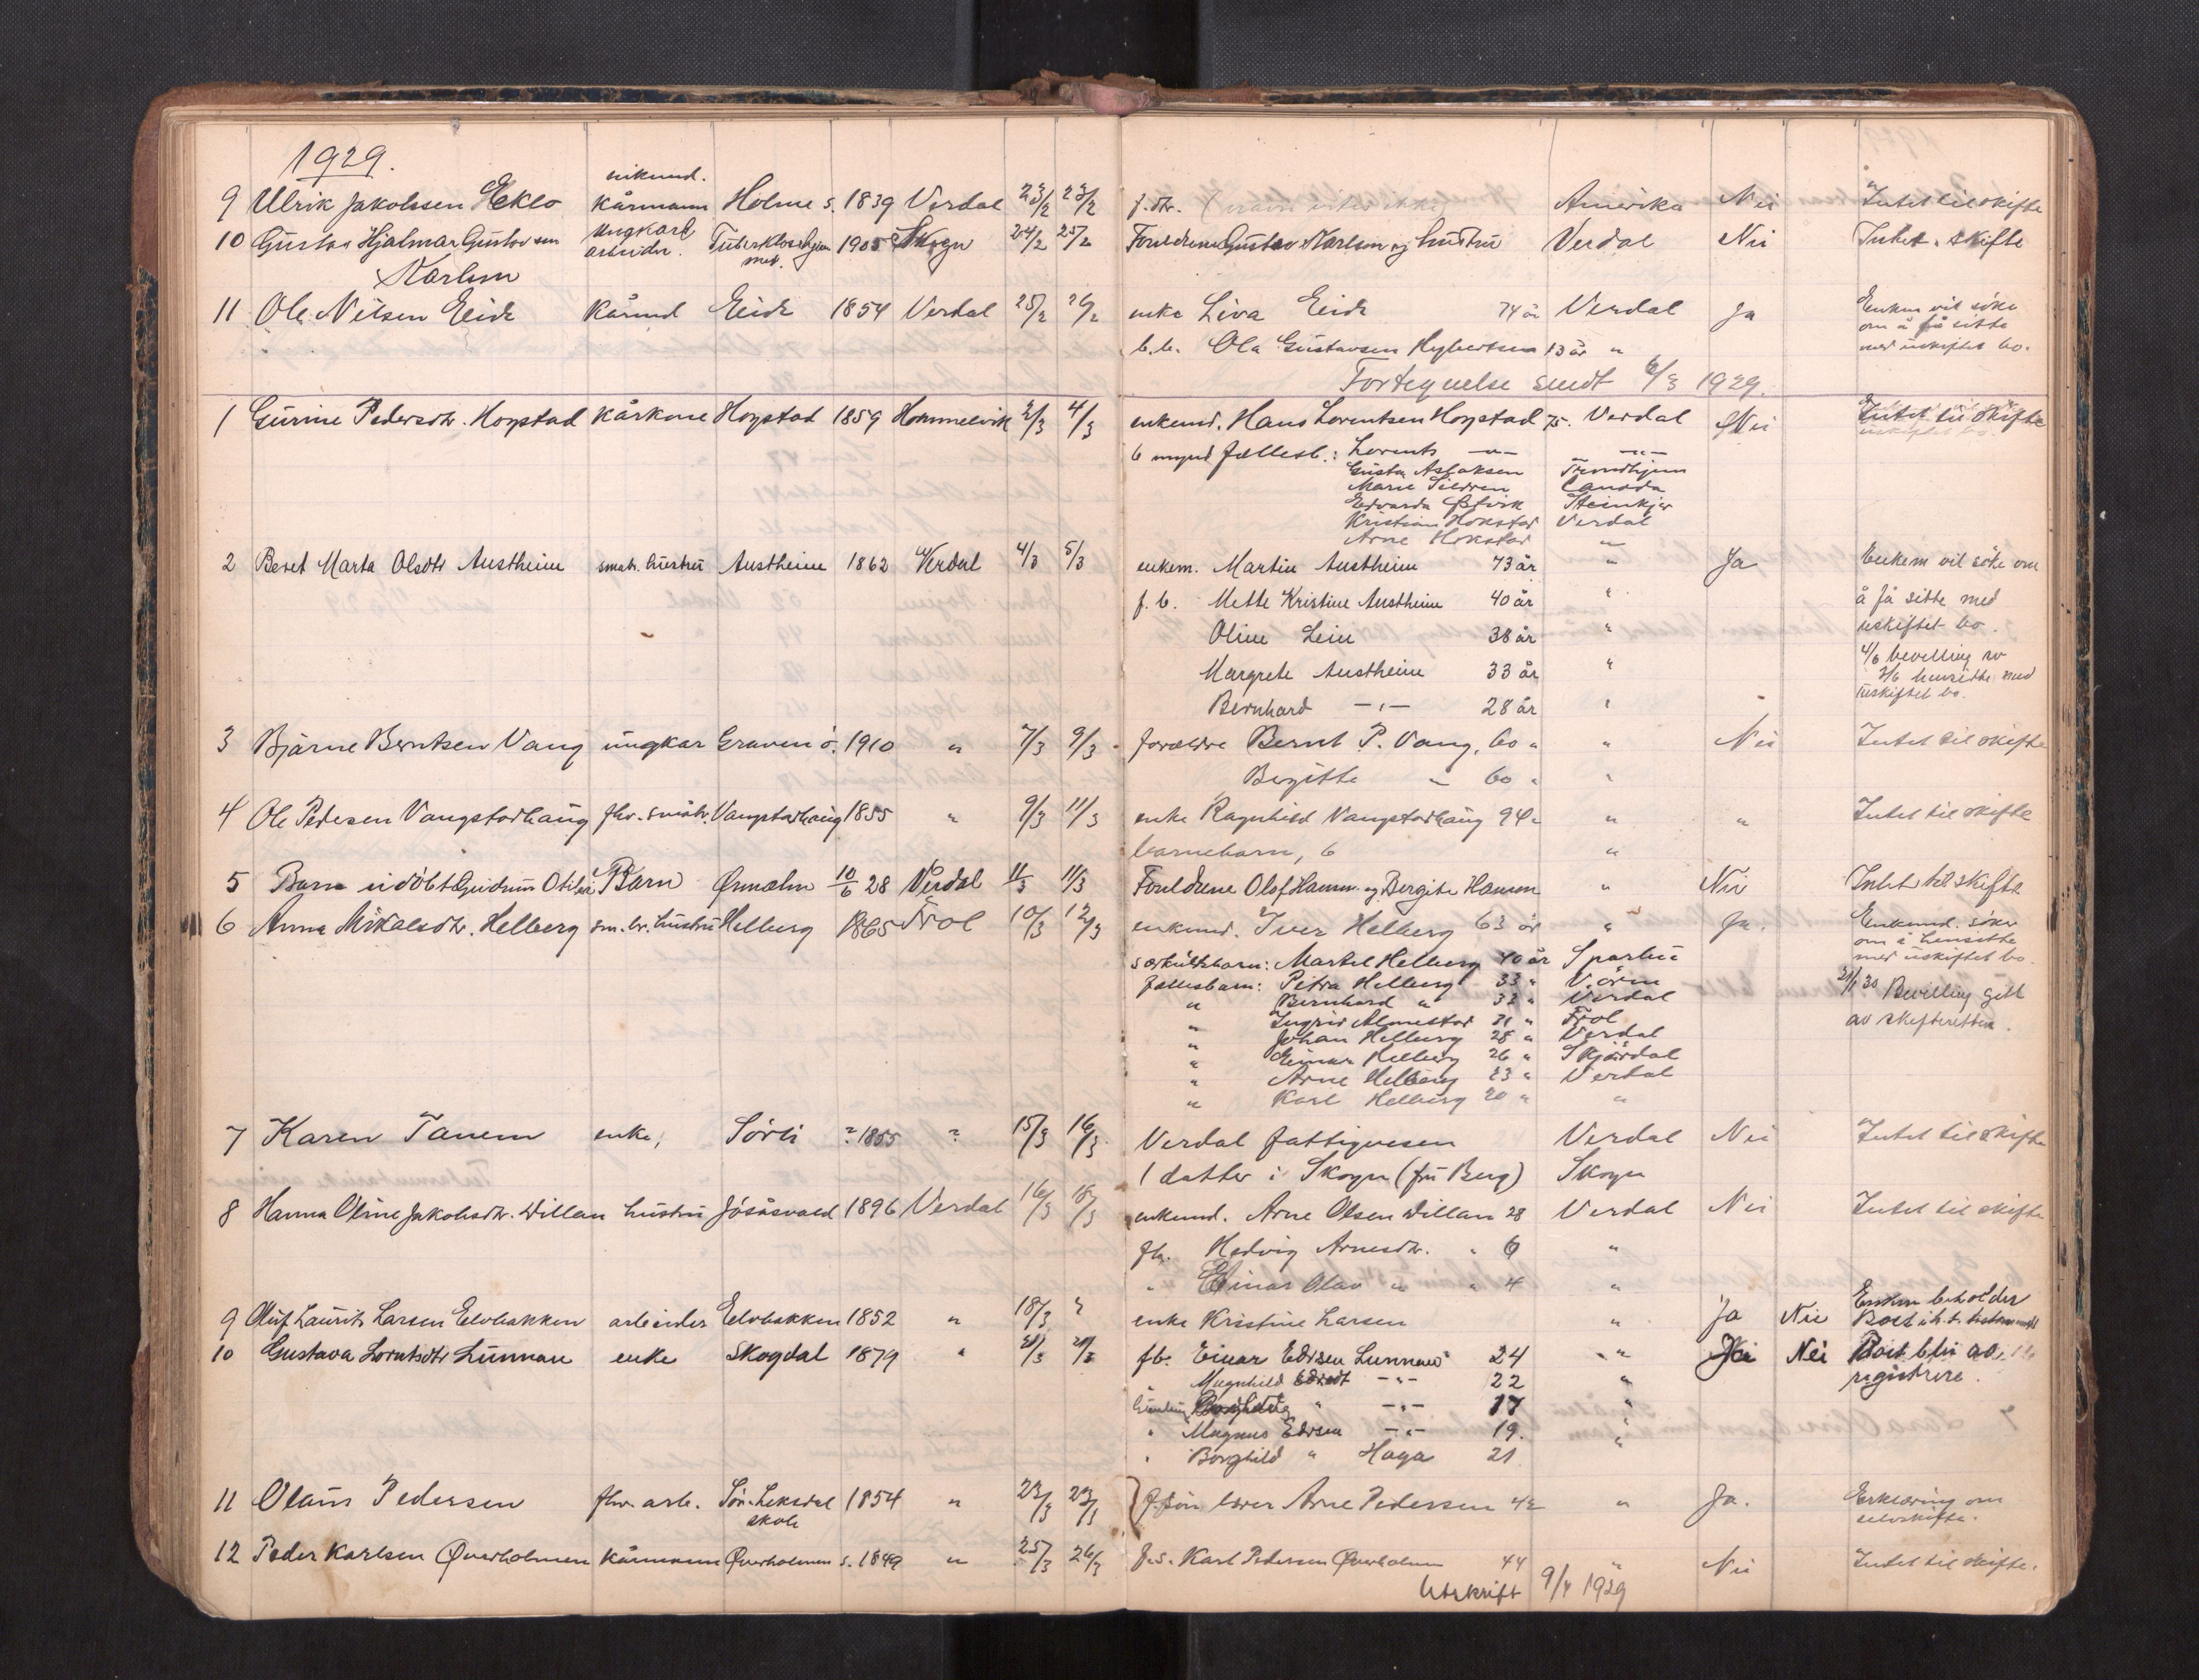 1929.
enkemd.
9 Ulrik Jakobsen Eklo kårmann Holme s. 1839 Verdal 23/2 23/2 f. dtr. Amerika Nei Intet til skifte
10 Gustav Hjalmar Gustavsen Ungkarl Tuberkloschjem 1905 Skogn 24/2 25/2 Foreldrene Gustav Karlsen og hustru Verdal Nei Intet. skifte
arbeider.
Karlsen
11 Ole Nilsen Eide Kårmd Eide 1854 Verdal 25/2 26/2 enke Liva Eide 74 år Verdal Ja Enken vil söke
om å få sitte
med uskiftet bo.
b.b. Ola Gustavsen Hybertsen 13 år "
Fortegnelse sendt 6/3 1929.
1 Gurine Pedersdtr. Hogstad Kårkone Hogstad 1859 Hommelvik 2/3 4/3 enkemd. Hans Lorentsen Hogstad 75. Verdal Nei Intet til skifte
6 mynd fællesb.: Lorents —"— —"—
Gusta Aslaksen Trondhjem
Marie Canada
Edvarda Steinkjer
Kristian Hokstad Verdal
Arne Hokstad "
2 Beret Marta Olsdtr Austheim smabr. hustru Austheim 1862 Verdal 4/3 5/3 enkem. Martin Austheim 73 år " Ja Enkem vil söke om
f. b. Mette Kristine Austheim 40 år " å få sitte med
Oline Lein 38 år " uskiftet bo.
4/6 bevilling av
Margrete Austheim 33 år " 3/6 hensidte med
uskiftet bo.
Bernhard —"— 28 år "
3 Bjarne Berntsen Vang ungkar Graven ö. 1910 " 7/3 9/3 forældre Bernt P. Vang, 60 " " Nei Intet til skifte
Bergitte " 60 " "
4 Ole Pedersen Vangstadhaug fhv. småbr. Vangstadhaug 1855 " 9/3 11/3 enke Ragnhild Vangstadhaug 94 " " " Intet til skifte
barnebarn, 6 "
5 Barn udöbt Gudrun Otilie Barn Ørmælen 10/6 28 Verdal 11/3 11/3 Foreldrene Olof Hansen og Bergite Hansen " Nei Intet til skifte
6 Anna Mikalsdtr. Helberg sm. br. hustru Helberg 1865 Frol 10/3 12/3 enkemd. Iver Helberg 63 år " Ja. Enkemd. söker
om å hensitte
med uskiftet bo.
særkulsbarn: Martel Helberg 40 år Sparbu
fællesbarn: Petra Helberg 33 " V. örm 31/1 30 Bevilling gitt
" Bernhard " 32 " Verdal
" Ingrid Almestad 31 " Frol av skifteretten.
" Johan Helberg 28 " Verdal
" Einar Helberg 26 " Skjördal
" Arne Helberg 23 " Verdal
" Karl Helberg 20 " "
7 Karen Tanem enke, Sörli ? 1855 ? 15/3 16/3 Verdal fattigvesen Verdal Nei Intet til skifte
1 datter i Skogn (fru Berg) Skogn
8 Hanna Oline Jakobsdtr. Dillan hustru Jösåsvald 1896 Verdal 16/3 18/3 enkemd. Arne Olsen Dillan 28 Verdal Nei Intet til skifte
fb. Hedvig Arnesdtr. " 6 "
" Einar Olav " " 4 "
9 Oluf Laurits Larsen Elvbakken arbeider Elvbakken 1852 " 18/3 " enke Kristine Larsen " Ja Nei Enken beholder
Boet i h.t. testament
10 Gustava Lorntsdtr Lunnan enke Skogdal 1879 " 21/3 21/3 fb. Einar Edvsen Lunnan 24 " Ja Nei Boet blir å
registrere.
" Magnhild Edvsdt —"— 22 "
" —"— 17 "
" Magnus Edvsen —"— 19. "
" Borghild " Haga 21
11 Olaus Pedersen fhv. arb. Sön. Leksdal 1854 " 23/3 23/3 f. sön lærer Arne Pedersen 42 " Ja. Erklæring om
skole selvskifte.
12 Peder Karlsen Øverholmen Kårmann Øverholmen s. 1849 " 25/3 26/3 f.s. Karl Pedersen Øverholmen 44 " Nei Intet til skifte.
Utskrift 9/4 1929